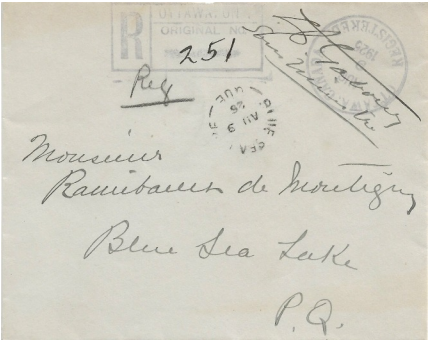 OTTAWA, ONT.
R
ORIGINAL NO.
251
Reg
REGISTERED
BLUE SEA
AU 9
25
QUE
Monsieur
Rambaud de Montigny
Blue Sea Lake
P.Q.